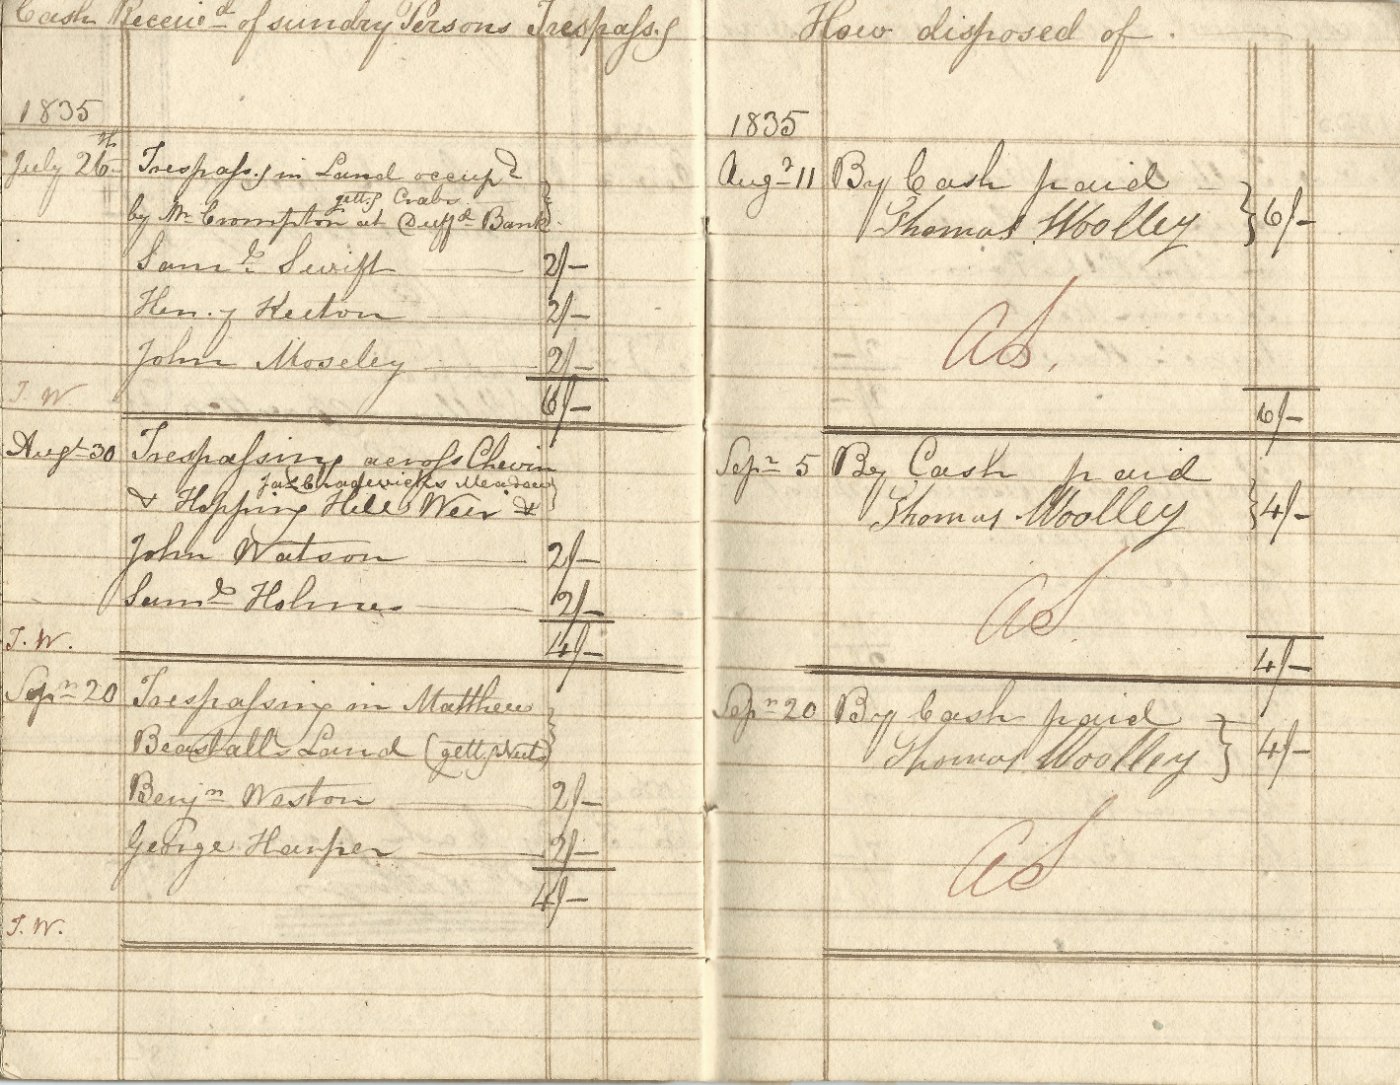 Cash Receiv.d of sundry Persons Trespass.g
1835
July 26th Trespass.g in Land occup.d
gett.g Crabs
by Mr. Crompton at Duff.d Bank
Sam.l Swift 2/-
Hen.y Keeton 2/-
John Moseley 2/-
T. W 6/-
Augt. 30 Trespassing across Chevin
Jas. Chadwick's Meadow
& Hopping Hill Weir &
John Watson 2/-
Sam.l Holmes 2/-
T. W. 4/-
Sepr. 20 Trespassing in Matthew
Beastall's Land (gett.g Nuts)
Benj.n Weston 2/-
George Harper 2/-
4/-
T. W.
How disposed of.
1835
Aug. 11 By Cash paid
Thomas Woolley } 6/-
AS.
6/-
Sepr. 5 By Cash paid
Thomas Woolley } 4/-
AS
4/-
Sepr. 20 By Cash paid
Thomas Woolley } 4/-
AS